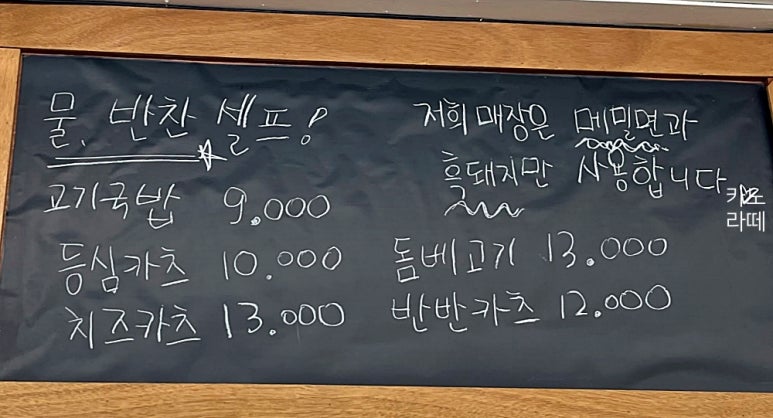 물, 반찬 셀프!
고기국밥 9.000
등심카츠 10.000
치즈카츠 13.000
저희 매장은 메밀면과
흑돼지만 사용합니다
돔베고기 13.000
반반카츠 12.000
라떼